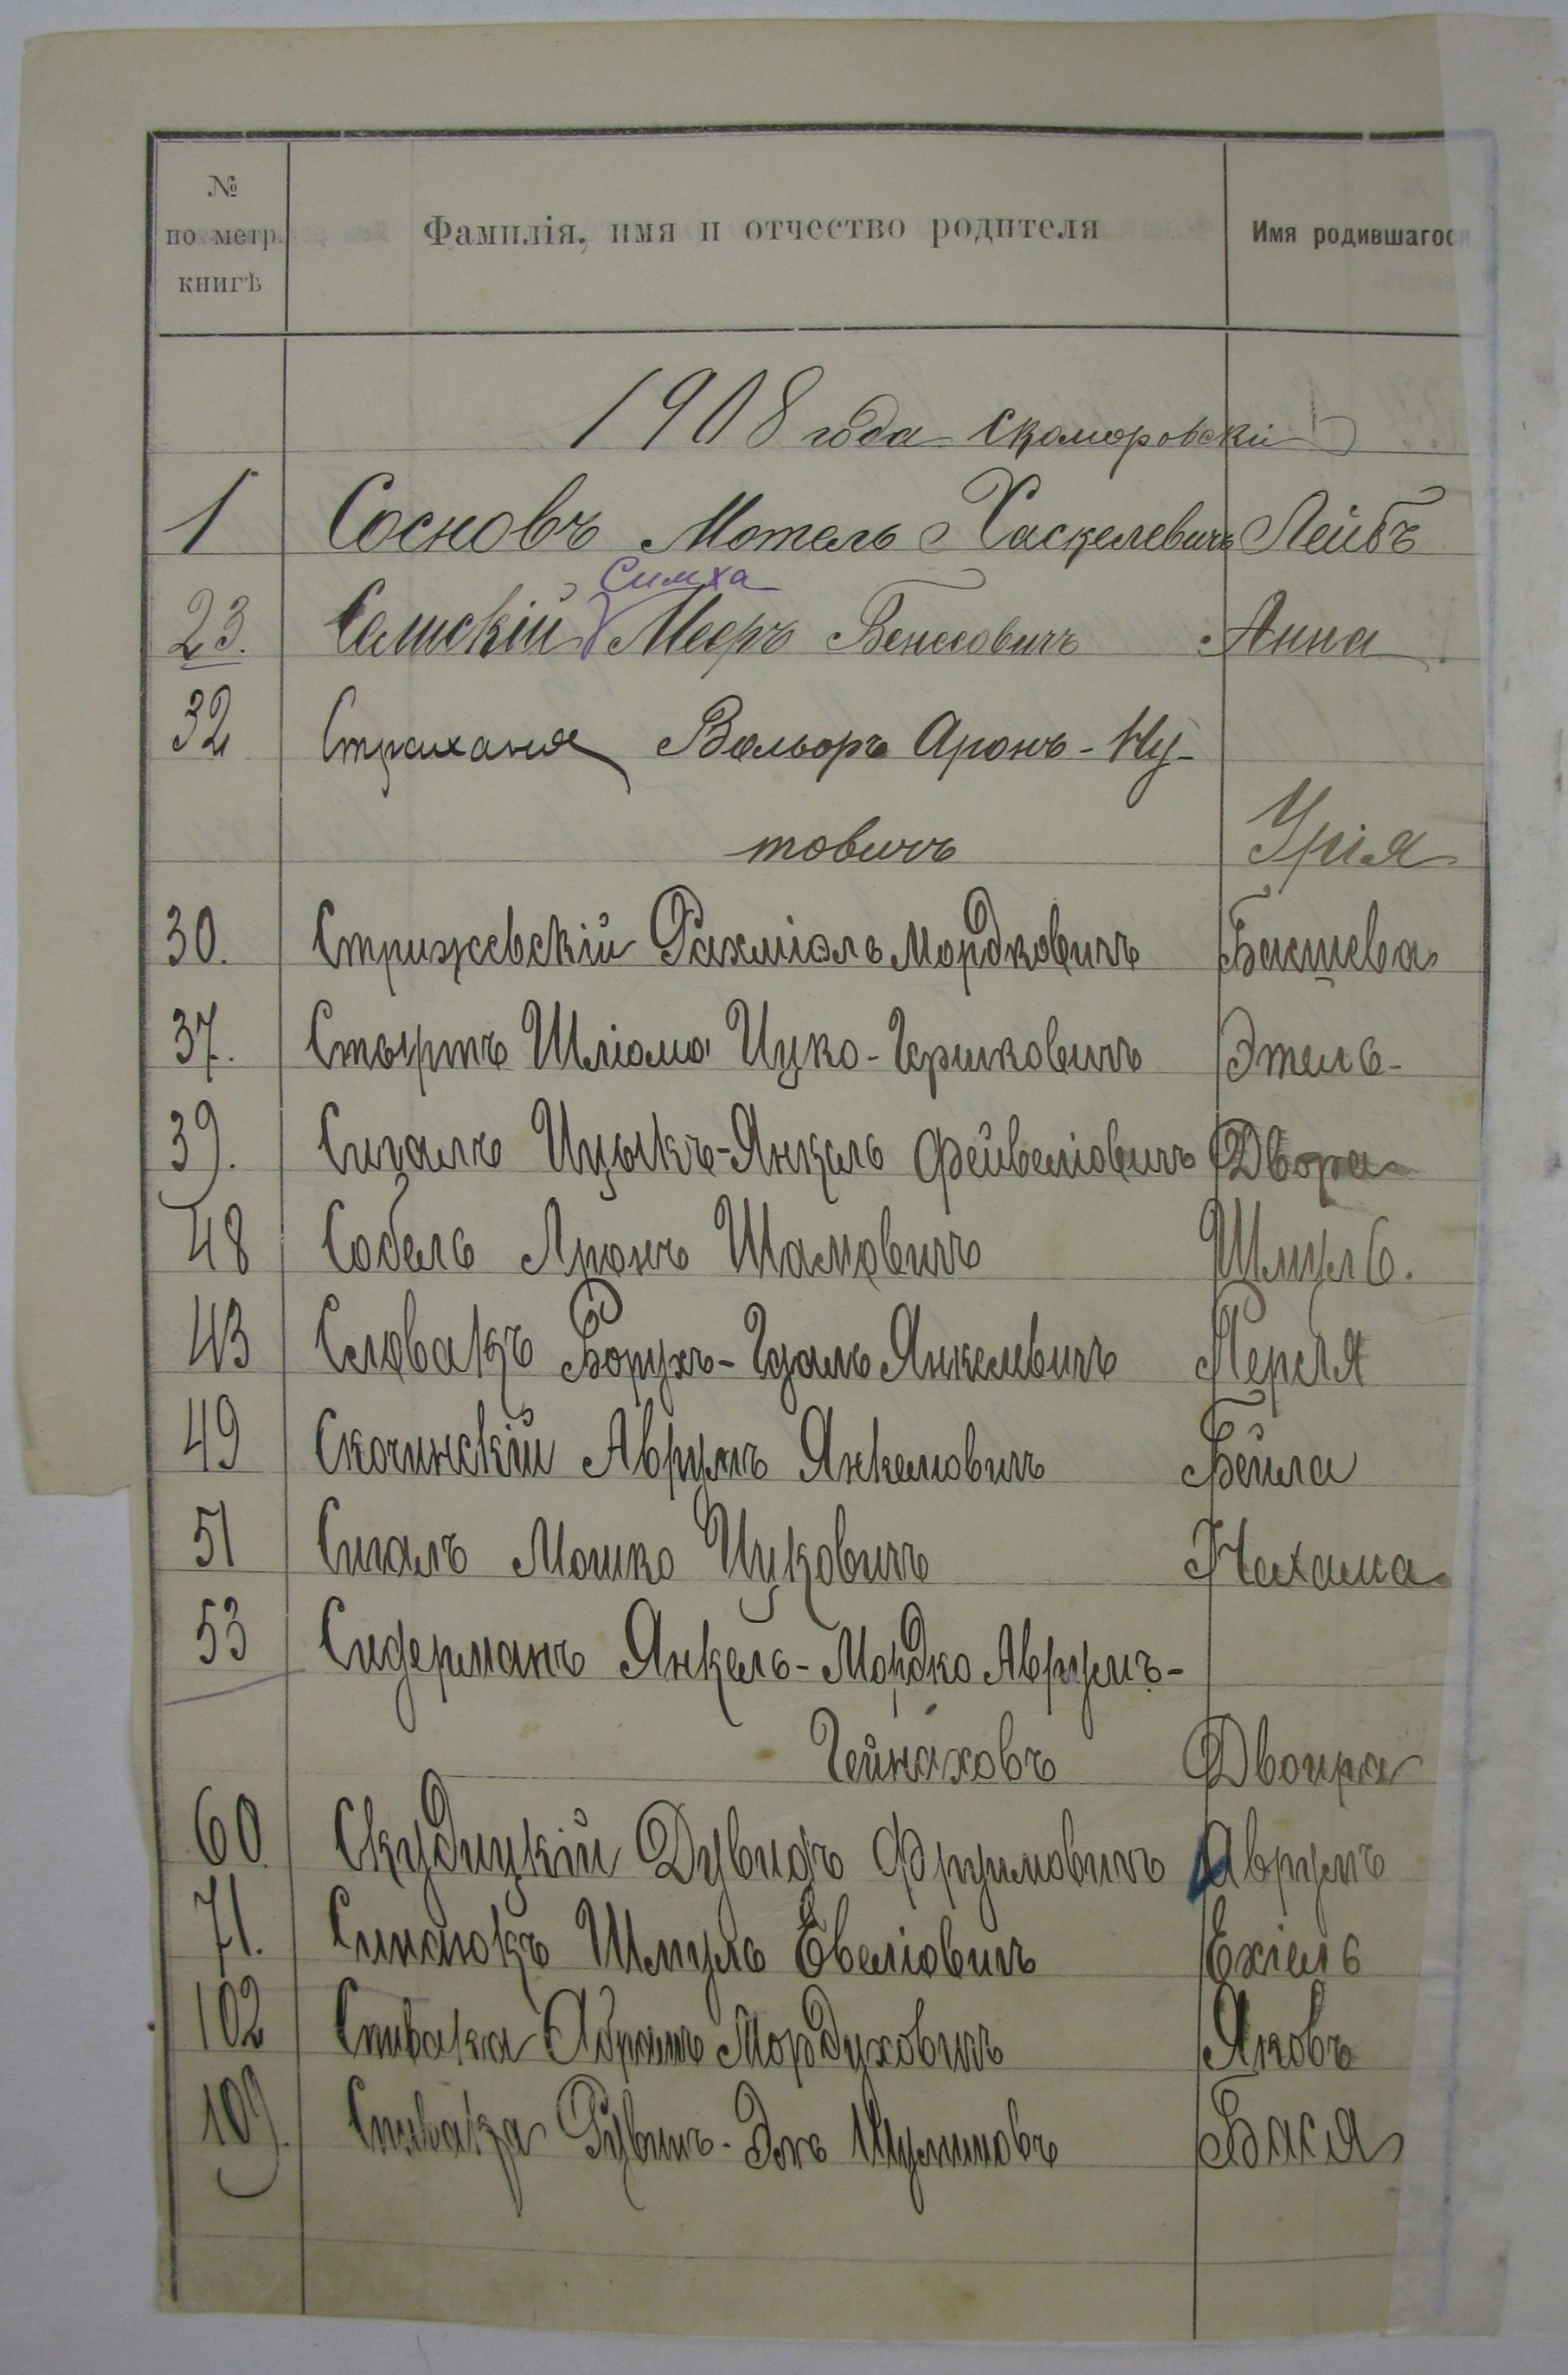 № по метр. книгѣ Фамилія, имя и отчество родителя Имя родившагося
1908 года Скоморовскій
1 Сосновъ Мотель Хаскелевичъ Лейбъ
Симха
23. Мееръ Бенсовичъ Анна
32 Вольфъ Аронъ-Ну-
товичъ Урія
30. Стрижевскій Рахміэль Мордковичъ Басшева
37. Стыртъ Шліома Ицко-Гершковичъ Этель
39. Сигалъ Ицыкъ-Янкель Фейвеліовичъ Двора
48 Собель Аронъ Шамовичъ Шмуль.
43 Словакъ Борухъ-Гдаль Янкелевичъ Перля
49 Скочинскій Аврумъ Янкелювичъ Бейла
51 Сигалъ Мошко Ицковичъ Нахама
53 Сидерманъ Янкель-Мордко Аврумъ-
Гейнаховъ Двойра
60 Скудицкій Дувидъ Фроимовичъ Аврумъ
71. Синаюкъ Шмуль Евеліовичъ Ехіель
102 Спивака Абрамъ Мордуховичъ Яковъ
109. Спивака Рувинъ- Шулимовъ Бася